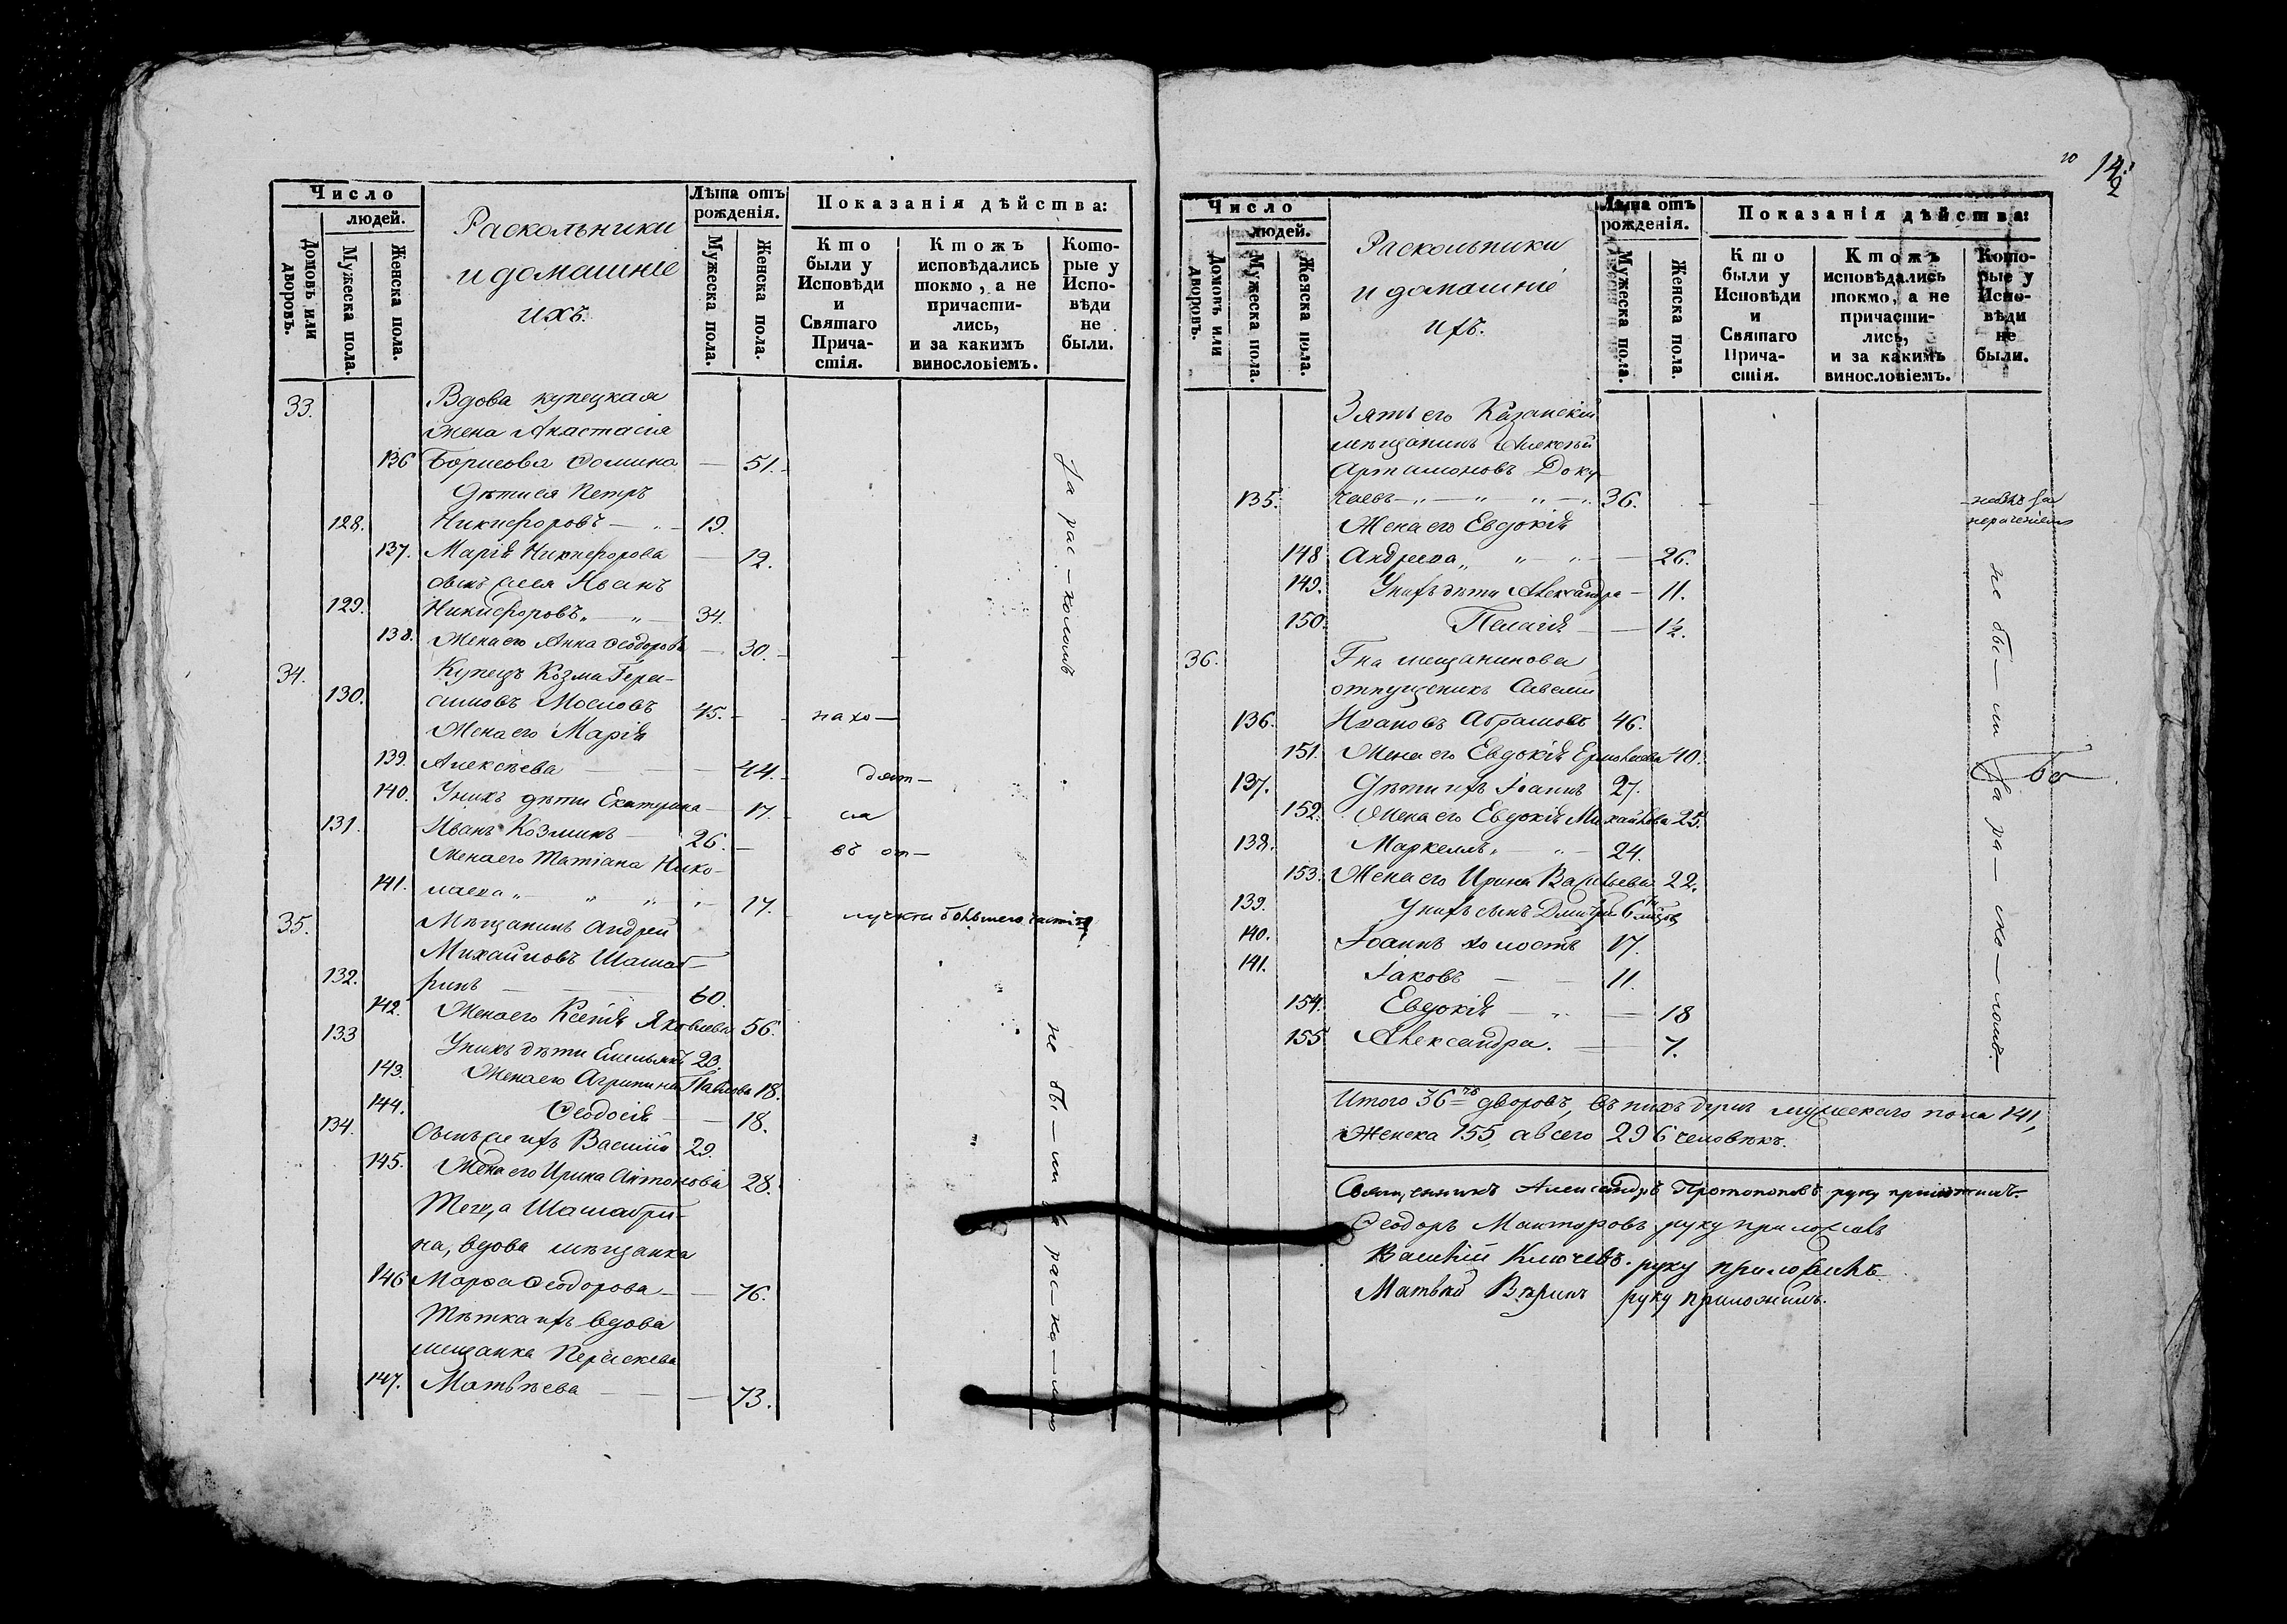 Число
людей.
Домовъ или дворовъ.
Мужеска пола.
Женска пола.
Раскольники
и домашніе
ихъ.
Лѣта отъ рожденія.
Мужеска пола.
Женска пола.
Показанія дѣйства:
Кто были у Исповѣди и Святаго Причастія.
Ктожъ исповѣдались токмо, а не причастились, и за какимъ винословіемъ.
Которые у Исповѣди не были.
33. Вдова купецкая
жена Анастасія
136 Борисова Фомина — 51.
Дѣти ея Петръ
128. Никифоровъ — 19.
137. Марія Никифорова — 12.
сынъ ея Иванъ
129. Никифоровъ „ — „ 34.
138. Жена его Анна Феодорова — 30.
34. Купецъ Козма Гера-
130. симовъ Мословъ 45.
Жена его Марія
139. Алексѣева — 44.
140. У нихъ дѣти Екатерина — 17.
131. Иванъ Козминъ — 26.
Жена его Татіана Нико-
141. лаева „ — „ „ 17.
35. Мѣщанинъ Андрей
Михайловъ Шашаб-
132. ринъ — 60.
142. Жена его Ксенія Яковлева 56.
133 У нихъ дѣти Емельянъ 23.
143. Жена его Агрипина Павлова 18.
144. Феодосія — 18.
134. Сынъ ихъ Василій 29.
145. Жена его Ирина Антонова 28.
Теща Шашабри-
на, вдова мѣщанка
146 Марфа Феодорова — 76.
Тѣтка ихъ вдова
мещанка Параскева
147. Матвѣева — 73.
нахо—
дят—
ся
въ от—
лучкѣ
За рас—коломъ
не бы—ли за рас—ко—ломъ
14.
Число
людей.
Домовъ или дворовъ.
Мужеска пола.
Женска пола.
Раскольники
и домашніе
ихъ.
Лѣта отъ рожденія.
Мужеска пола.
Женска пола.
Показанія дѣйства:
Кто были у Исповѣди и Святаго Причастія.
Ктожъ исповѣдались токмо, а не причастились, и за какимъ винословіемъ.
Которые у Исповѣди не были.
Зять его Казанскій
мѣщанинъ Алексѣй
Артамоновъ Доку-
135. чаевъ — „ — „ „ — „ 36.
Жена его Евдокія
148 Андреева „ „ — „ — 26.
149. У нихъ дѣти Александра — 11.
150. Пелагія — 1½.
36. Г-на мещанинова
отпущеникъ Савелій
136. Ивановъ Абрамовъ 46.
151. Жена его Евдокія Ермолаева 40.
137. Дѣти ихъ Іоаннъ 27.
152. Жена его Евдокія Михайлова 25.
138. Маркеллъ „ — „ — 24.
153. Жена его Ирина Васильева 22.
139. У нихъ сынъ Дмитрій 6
140. Іоаннъ холостъ 17.
141. Іаковъ — 11.
154. Евдокія — „ — 18
155 Александра. — 7.
нерачениемъ
не бы—ли за ра—ско—ломъ.
Итого 36ть дворовъ, въ нихъ душъ мужескаго пола 141,
Женска 155, а всего 296 человѣкъ.
Священникъ Александръ Протопоповъ руку приложилъ.
Феодоръ Манторовъ руку приложилъ
Василій Ключевъ. руку приложилъ
Матвѣй руку приложилъ.